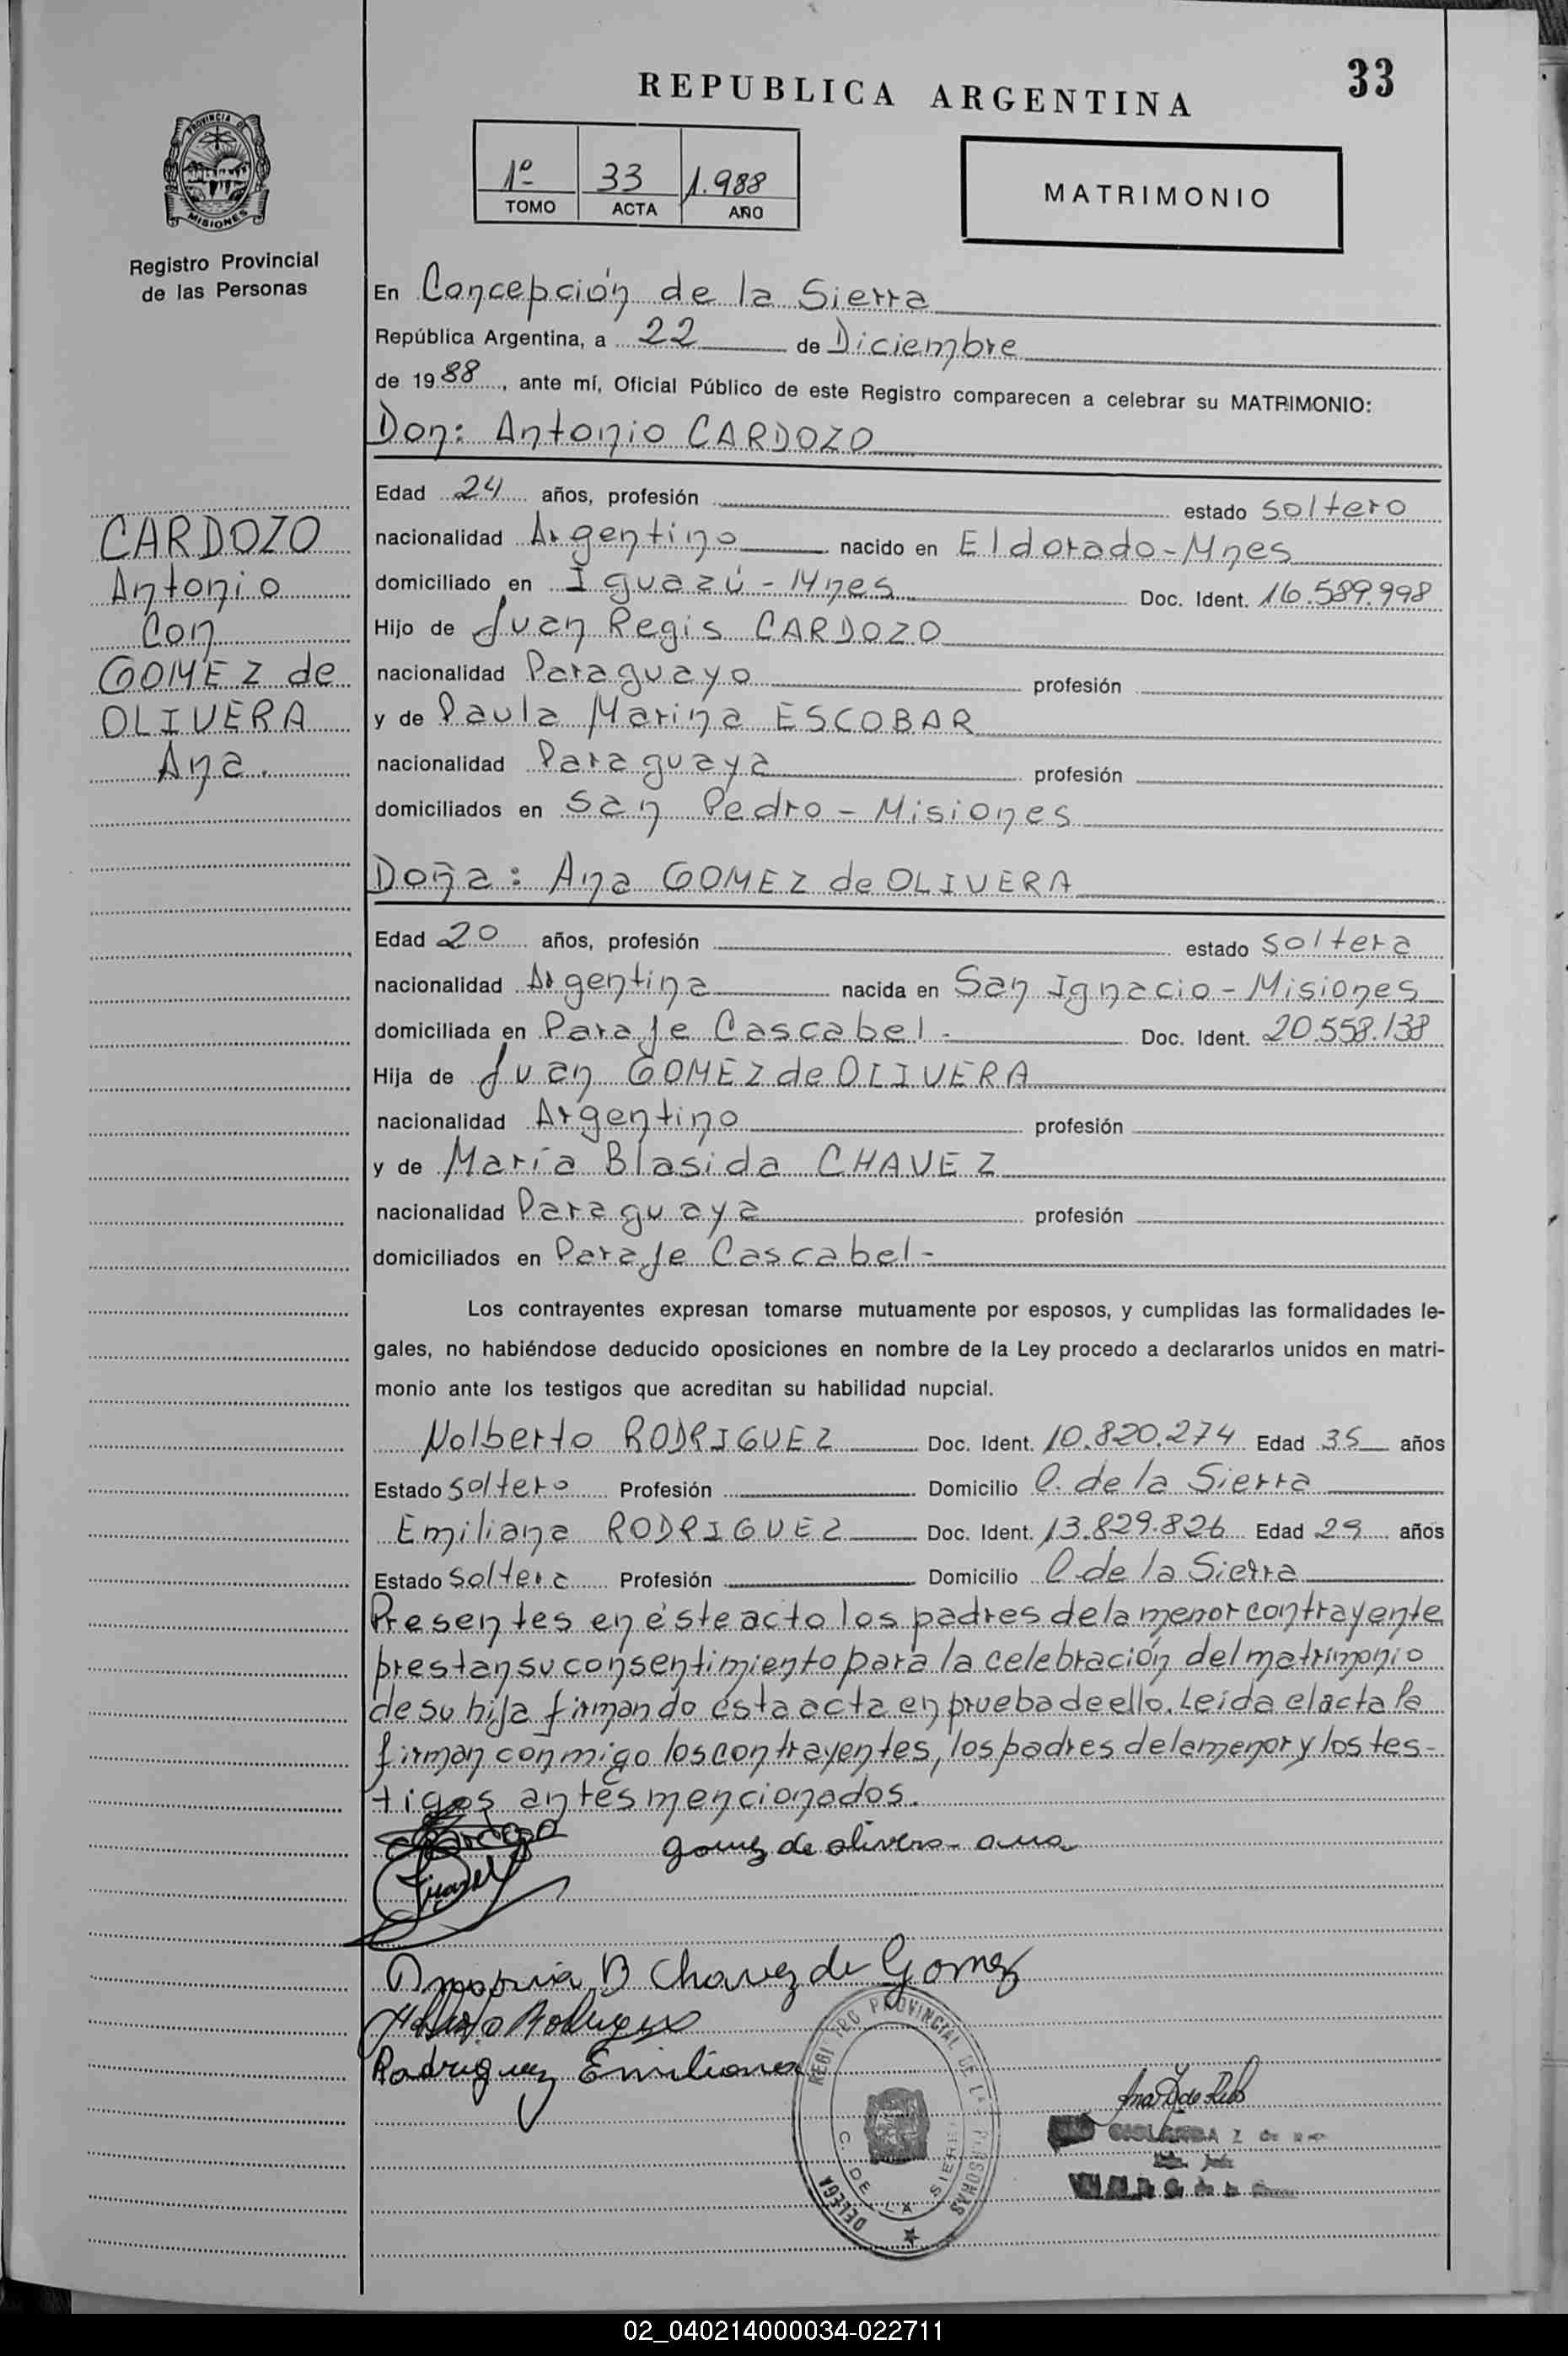 33
REPUBLICA ARGENTINA
1º 33 1.988
TOMO ACTA AÑO
MATRIMONIO
PROVINCIA DE MISIONES
Registro Provincial
de las Personas
En Concepción de la Sierra
República Argentina, a 22 de Diciembre
de 1988, ante mí, Oficial Público de este Registro comparecen a celebrar su MATRIMONIO:
Don: Antonio CARDOZO
Edad 24 años, profesión estado soltero
nacionalidad Argentino nacido en Eldorado-Mnes
domiciliado en Iguazú-Mnes Doc. Ident. 16.589.998
Hijo de Juan Regis CARDOZO
nacionalidad Paraguayo profesión
y de Paula Marina ESCOBAR
nacionalidad Paraguaya profesión
domiciliados en San Pedro - Misiones
CARDOZO
Antonio
Con
GOMEZ de
OLIVERA
Ana.
Doña: Ana GOMEZ de OLIVERA
Edad 20 años, profesión estado soltera
nacionalidad Argentina nacida en San Ignacio - Misiones
domiciliada en Paraje Cascabel - Doc. Ident. 20.558.138
Hija de Juan GOMEZ de OLIVERA
nacionalidad Argentino profesión
y de María Blasida CHAVEZ
nacionalidad Paraguaya profesión
domiciliados en Paraje Cascabel -
Los contrayentes expresan tomarse mutuamente por esposos, y cumplidas las formalidades le-
gales, no habiéndose deducido oposiciones en nombre de la Ley procedo a declararlos unidos en matri-
monio ante los testigos que acreditan su habilidad nupcial.
Nolberto RODRIGUEZ Doc. Ident. 10.820.274 Edad 35 años
Estado soltero Profesión Domicilio C. de la Sierra
Emiliana RODRIGUEZ Doc. Ident. 13.829.826 Edad 29 años
Estado soltera Profesión Domicilio C. de la Sierra
Presentes en éste acto los padres de la menor contrayente
prestan su consentimiento para la celebración del matrimonio
de su hija firmando ésta acta en prueba de ello. Leída el acta la
firman conmigo los contrayentes, los padres de la menor y los tes-
tigos antes mencionados.
Cardozo
gomez de olivera - ana
B Chavez de Gomez
Rodriguez
Rodriguez Emiliana
REGISTRO PROVINCIAL DE LAS PERSONAS
C. DE LA SIERRA
02_040214000034-022711